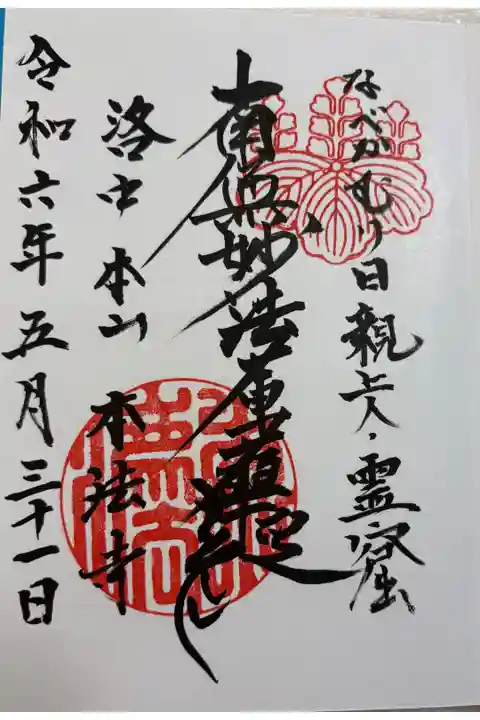 なべかむり日親上人・霊窟
南無妙法蓮華経
洛中 本山 本法寺
令和六年五月三十一日